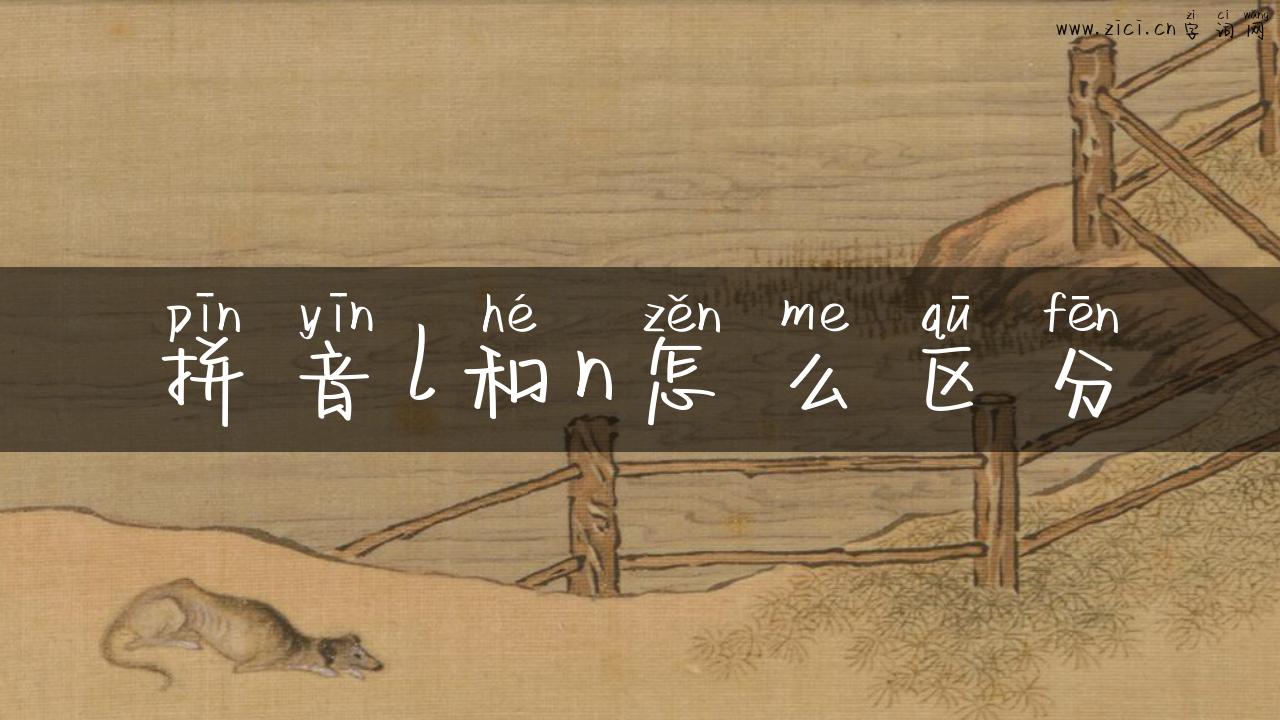 zi ci wang
www.zici.cn 字词网
pīn yīn hé zěn me qū fēn
拼音l和n怎么区分